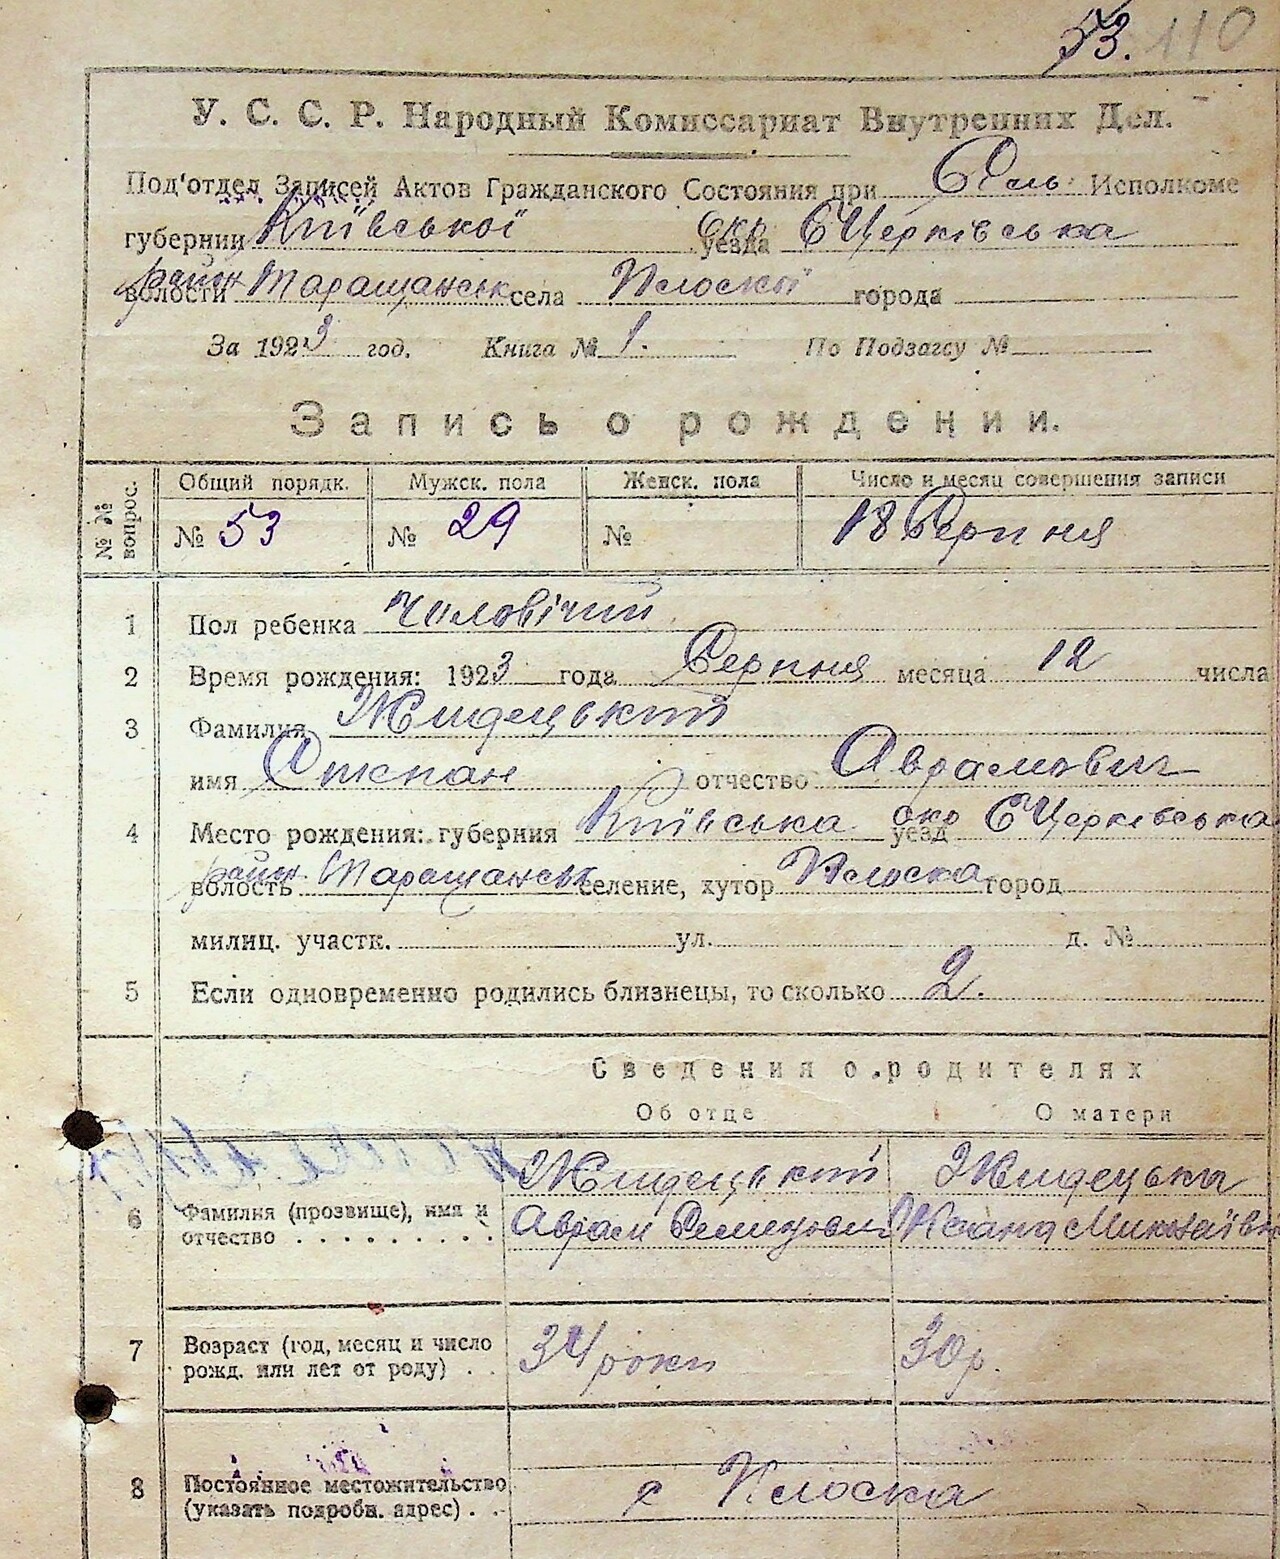 53. 110
У. С. С. Р. Народный Комиссариат Внутренних Дел.
Под'отдел Записей Актов Гражданского Состояния при Сель Исполкоме
губернии Київської окр уезда БЦерківська
район волости Таращанськ села Плоскої города
За 1923 год. Книга № 1. По Подзагсу №
Запись о рождении.
№ № вопрос. Общий порядк. Мужск. пола Женск. пола Число и месяц совершения записи
№ 53 № 29 № 18 Серпня
1 Пол ребенка Чоловічий
2 Время рождения: 1923 года Серпня месяца 12 числа
3 Фамилия Жидецький
имя Степан отчество Аврамович
4 Место рождения: губерния Київська окр уезд БЦерківська
район волость Таращанськ селение, хутор Плоска город
милиц. участк. ул. д. №
5 Если одновременно родились близнецы, то сколько 2.
Сведения о родителях
Об отце О матери
Жидецький Жидецька
6 Фамилия (прозвище), имя и Аврам Семенович
отчество
7 Возраст (год, месяц и число 34 роки 30 р.
рожд. или лет от роду)
8 Постоянное местожительство с Плоска
(указать подробн. адрес)